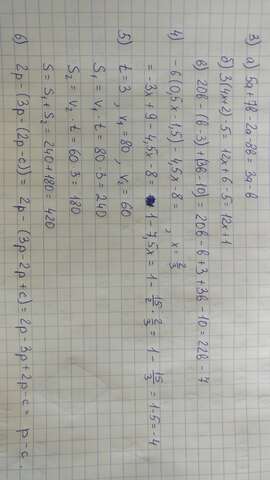 3) а) 5a+7b-2a-8b=3a-b
б) 3(4x+2)-5=12x+6-5=12x+1
в) 20b-(b-3)+(3b-10)=20b-b+3+3b-10=22b-7
4) -6(0,5x-1,5)-4,5x-8= , x=2/3
=-3x+9-4,5x-8= 1-7,5x=1-15/2·2/3=1-15/3=1-5=-4
5) t=3, v₁=80, v₂=60
S₁=v₁·t=80·3=240
S₂=v₂·t=60·3=180
S=S₁+S₂=240+180=420
6) 2p-(3p-(2p-c))=2p-(3p-2p+c)=2p-3p+2p-c=p-c.